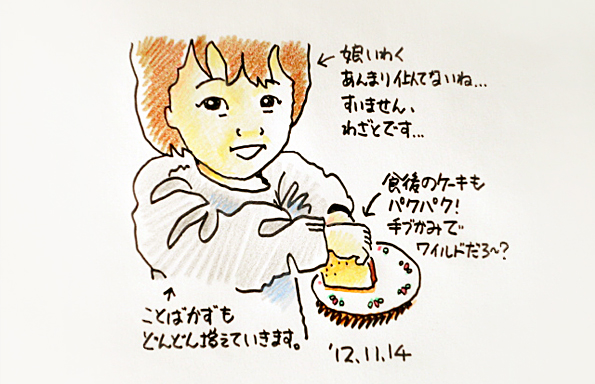 娘いわく
あんまり似てないね…
すいません、
わざとです…
食後のケーキも
パクパク!
手づかみで
ワイルドだろ〜?
ことばかずも
どんどん増えていきます。
'12.11.14